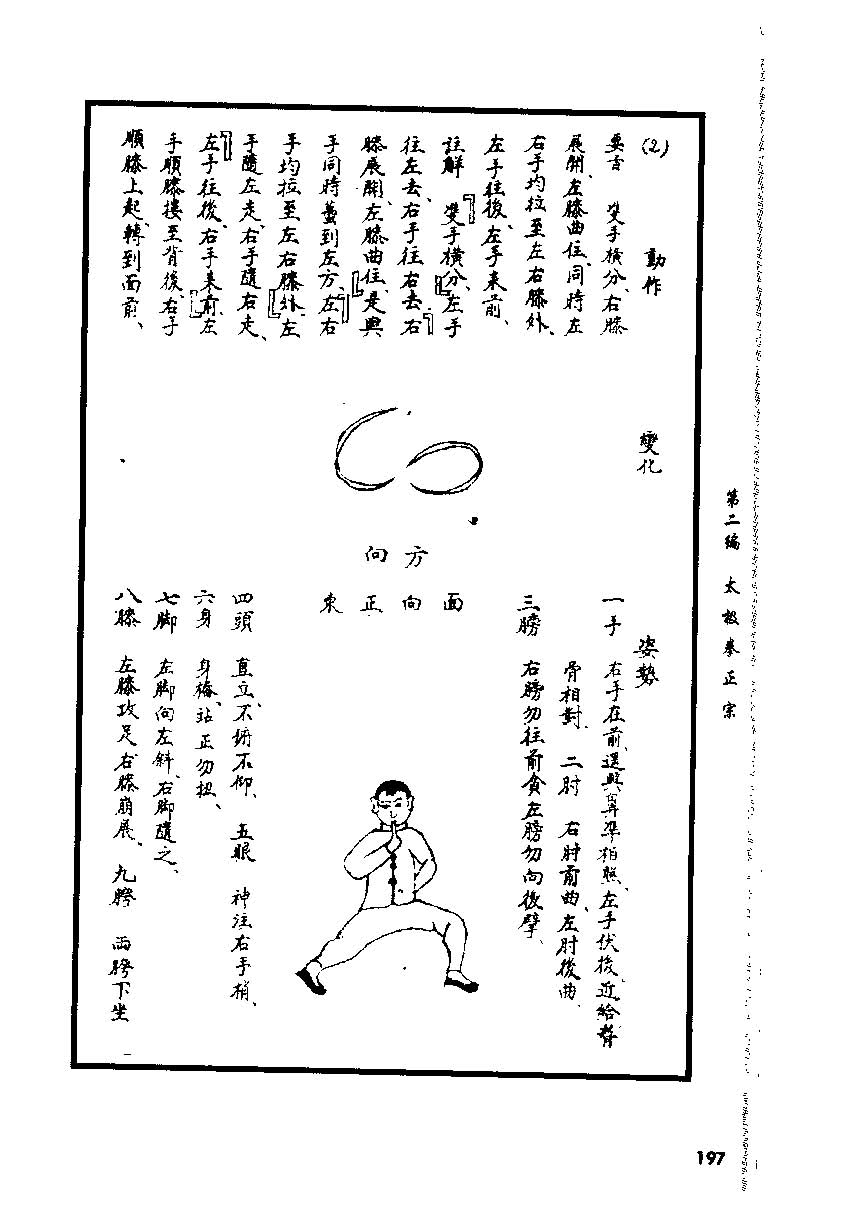 第二編　太极拳正宗
(2)　動作
要言　雙手橫分、右膝
展開、左膝曲住、同時左
右手均拉至左右膝外、
左手往後、左手来前、
註解　『雙手橫分』左手
往左去、右手往右去『右
膝展開、左膝曲住』是與
手同時蓋到左方、『左右
手均拉至左右膝外』左
手隨左走、右手隨右走、
『左手往後、右手来前』左
手順膝摟至背後、右手
順膝上起、轉到面前、
變化
方向
面向正東
姿勢
一手　右手在前、還與鼻準相照、左手伏後、近給脊
骨相對、二肘　右肘前曲、左肘後曲、
三膀　右膀勿往前貪左膀勿向後擘、
四頭　直立、不俯不仰、五眼　神注右手梢、
六身　身樁、站正勿扭、
七脚　左脚向左斜、右脚隨之、
八膝　左膝攻足右膝崩展、九胯　両胯下坐
197